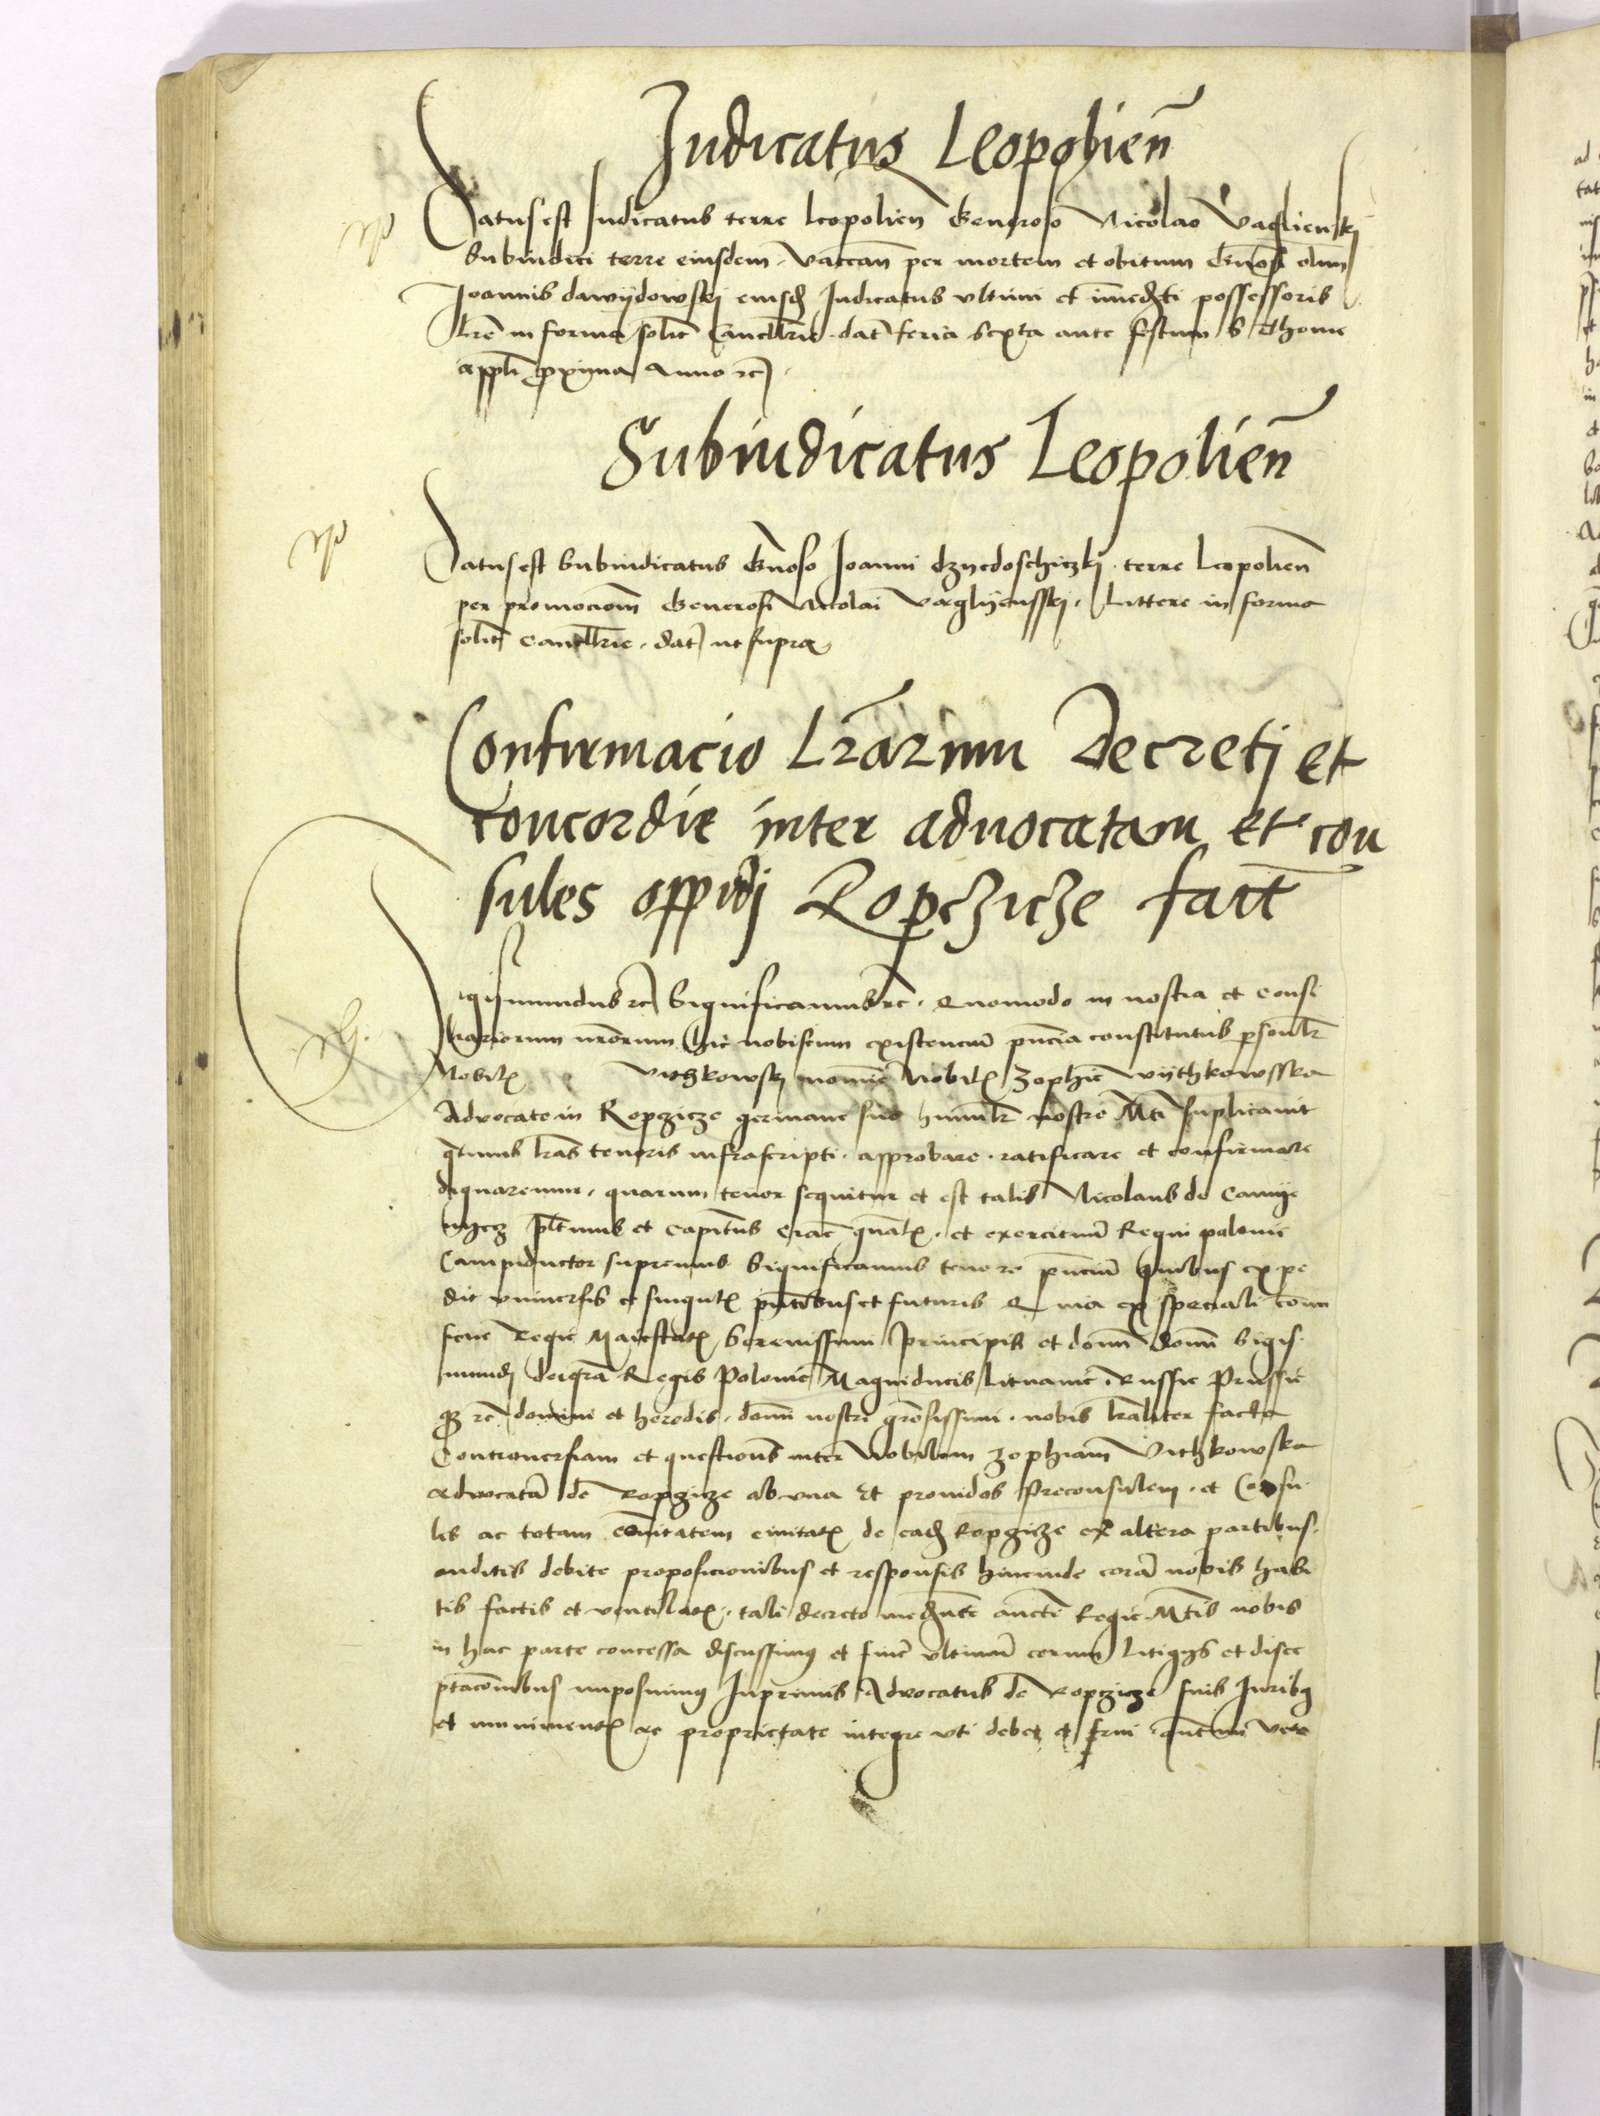 Iudicatus Leopolien̄
Datus est Iudicatus terre leopolien̄ Generoso Nicolao Vaglienskj
Subiudici terre eiusdem. Vaccan̄ per mortem et obitum Gn̄osi olim
Joannis dawydowskj eiusdē Iudicatus vltimi et im̄edti possessoris
Lrē in forma solit̄ Cancellr̄ie. dat̄ feria sexta ante festum S Thome
appl̄i proxima Anno rc̄
Subiudicatus Leopolien̄
Datus est Subiudicatus Gn̄oso Ioanni dzyedoschiczkj. terre Leopolien̄
per promocion̄em Generosi Nicolai Vaglyensskj. Littere in forma
solit̄ Cancellr̄ie. dat̄ ut supra
Confirmacio Lr̄arum Decretj et
concordie inter aduocatam et con
sules oppidj Ropczicze fact̄
Sigismundus rc̄ Significamus rc̄. Quomodo in nostra et consi
liariorum nr̄orum hic nobiscum existenciū pn̄cia constitutus psonlr̄
Nobilis Vithkowskj nomine Nobilis Zophie Wythkowsska
Aduocate in Ropczicze germane sue humilr̄ nostre Mti suplicauit
qt̄enus lr̄as tenoris infrascripti. approbare. ratificare et confirmare
dignaremur. quarum tenor sequitur et est talis Nicolaus de Camye
nyecz pltinus et Capitn̄us Crac̄ gn̄alis. et exercituū Regni polonie
Campiductor supremus Significamus tenore pn̄ciū quibus expe
dit vniuersis et singulis pn̄tibus et futuris Quia ex speciali com̄i
sione Regie Maiestatis Serenissimi Principis et domī domī Sigis
mundj dei gr̄a Regis Polonie Magniducis Lituanie. Russie Prussie
qz rc̄ domini et heredis. domī nostri gr̄osissimi. nobis lr̄aliter facta
Controuersiam et questiones inter Nobilem Zophiam Vithkowska
aduocatā de Ropczicze ab vna Et prouidos Preconsulem. et Consu
les ac totam com̄itatem ciuitatis de eadē Ropczicze ex altera partibus.
auditis debite proposicionibus et responsis hincinde corā nobis habi
tis factis et ventilatis. tali decreto mediante aucte Regie Mtis nobis
in hac parte concessa discussimus et finē vltimū eorum litigijs et disce
ptacōnibus imposuimus Inprimis Aduocatus de Ropczicze suis Iuribus
et munimentis ac proprietate integre vti debet et frui. vete